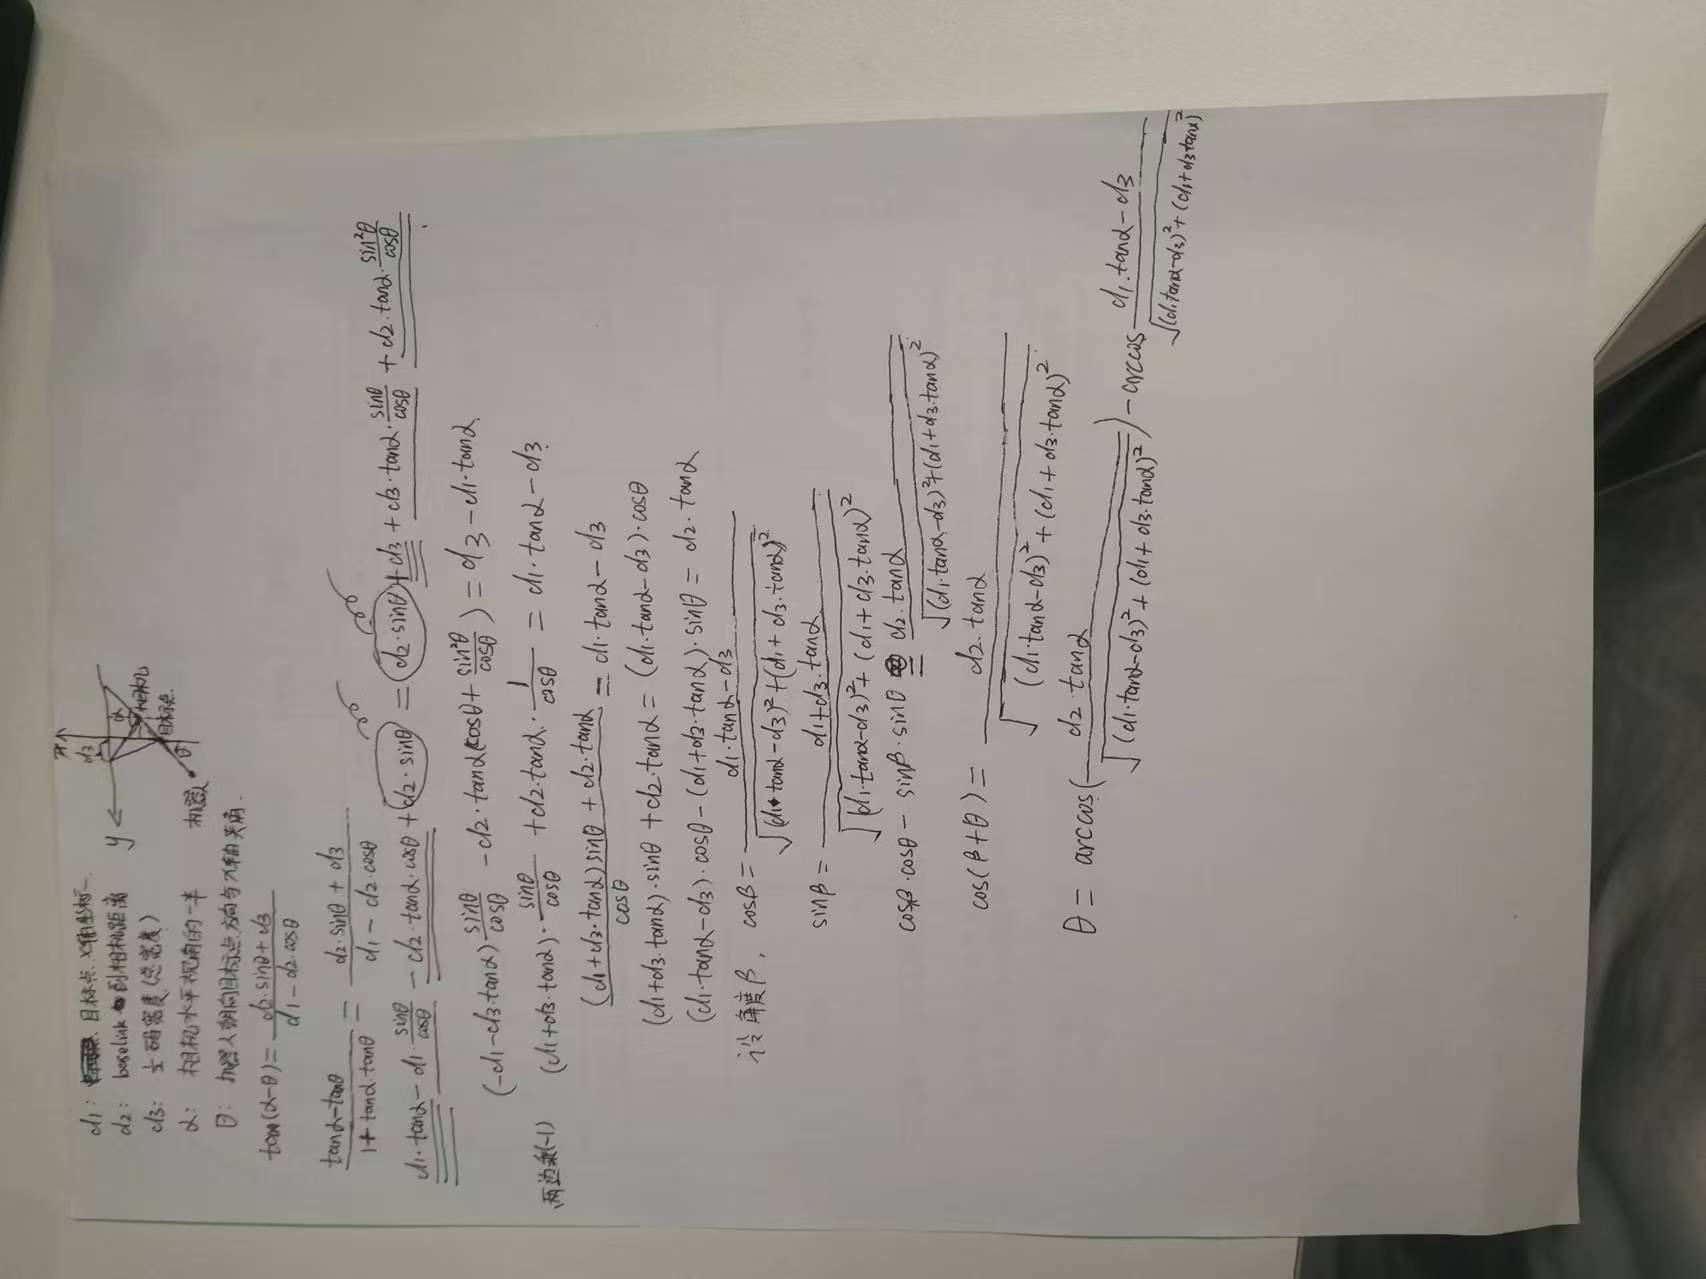 d1: 目标点x轴坐标
d2: baselink 到相机距离
d3: 土码宽度(总宽度)
α: 相机水平视角的一半
θ: 机器人朝向目标点方向与x轴夹角.
x
y
d3
α
相机
目标点
θ
tan(α-θ) = (d2·sinθ + d3)/(d1 - d2·cosθ)
(tanα - tanθ)/(1 + tanα·tanθ) = (d2·sinθ + d3)/(d1 - d2·cosθ)
d1·tanα - d1·sinθ/cosθ - d2·tanα·cosθ + d2·sinθ = d2·sinθ + d3 + d3·tanα·sinθ/cosθ + d2·tanα·sin²θ/cosθ.
(-d1-d3·tanα)sinθ/cosθ - d2·tanα(cosθ + sin²θ/cosθ) = d3 - d1·tanα
两边乘(-1) (d1+d3·tanα)·sinθ/cosθ + d2·tanα·1/cosθ = d1·tanα - d3.
((d1+d3·tanα)sinθ + d2·tanα)/cosθ = d1·tanα - d3
(d1+d3·tanα)·sinθ + d2·tanα = (d1·tanα-d3)·cosθ
(d1·tanα-d3)·cosθ - (d1+d3·tanα)·sinθ = d2·tanα
设角度β, cosβ = (d1·tanα-d3)/√((d1·tanα-d3)²+(d1+d3·tanα)²)
sinβ = (d1+d3·tanα)/√((d1·tanα-d3)²+(d1+d3·tanα)²)
cosβ·cosθ - sinβ·sinθ = d2·tanα/√((d1·tanα-d3)²+(d1+d3·tanα)²)
cos(β+θ) = d2·tanα/√((d1·tanα-d3)²+(d1+d3·tanα)²)
θ = arccos(d2·tanα/√((d1·tanα-d3)²+(d1+d3·tanα)²)) - arccos (d1·tanα-d3)/√((d1·tanα-d3)²+(d1+d3tanα)²)